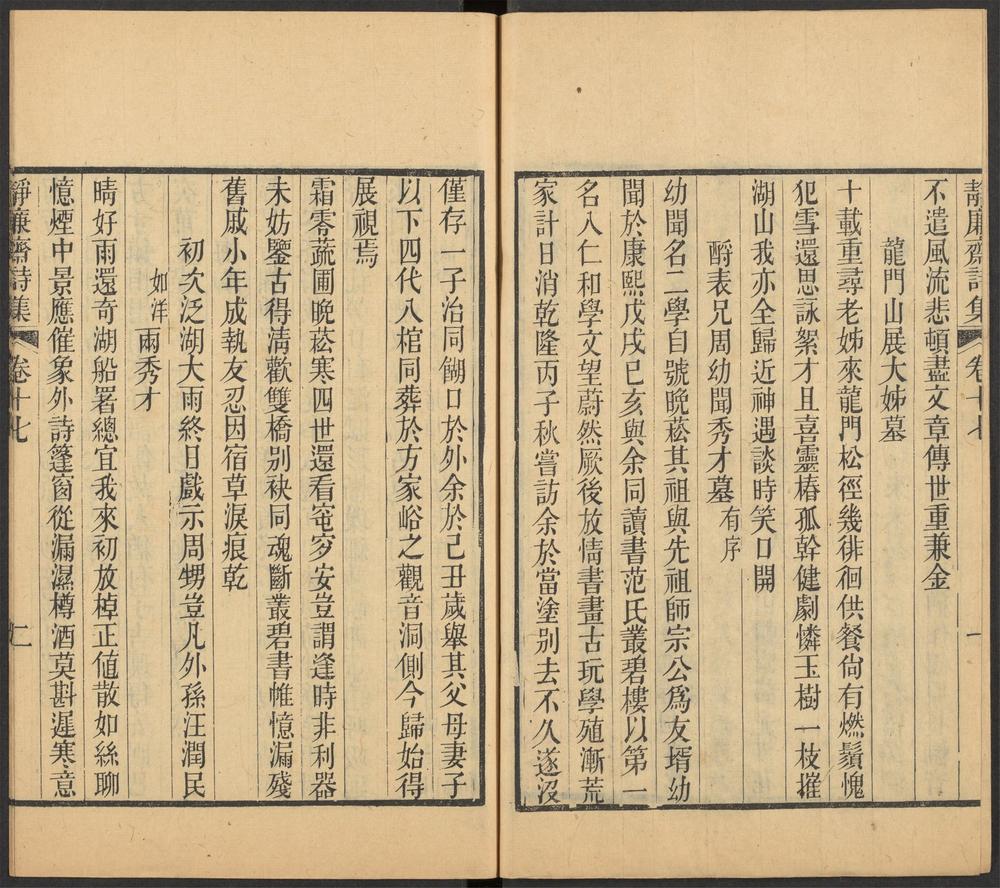 靜廉齋詩集 卷十七 一
不遣風流悲頓盡文章傳世重兼金
龍門山展大姊墓
十載重尋老姊來龍門松徑幾徘徊供餐尙有燃鬚愧
犯雪還思詠絮才且喜靈椿孤幹健劇憐玉樹一枝摧
湖山我亦全歸近神遇談時笑口開
酹表兄周幼聞秀才墓有序
幼聞名二學自號晚菘其祖與先祖師宗公爲友壻幼
聞於康熙戊戌已亥與余同讀書范氏叢碧樓以第一
名入仁和學文望蔚然厥後放情書畫古玩學殖漸荒
家計日消乾隆丙子秋嘗訪余於當塗別去不久遂沒
僅存一子治同餬口於外余於己丑歲舉其父母妻子
以下四代八棺同葬於方家峪之觀音洞側今歸始得
展視焉
霜零蔬圃晚菘寒四世還看窀穸安豈謂逢時非利器
未妨鑒古得淸歡雙橋別袂同魂斷叢碧書帷憶漏殘
舊戚小年成執友忍因宿草淚痕乾
初次泛湖大雨終日戲示周甥豈凡外孫汪潤民
如洋雨秀才
晴好雨還奇湖船署總宜我來初放棹正値散如絲聊
憶煙中景應催象外詩篷窗從漏濕樽酒莫斟遲寒意
靜廉齋詩集 卷十七 二